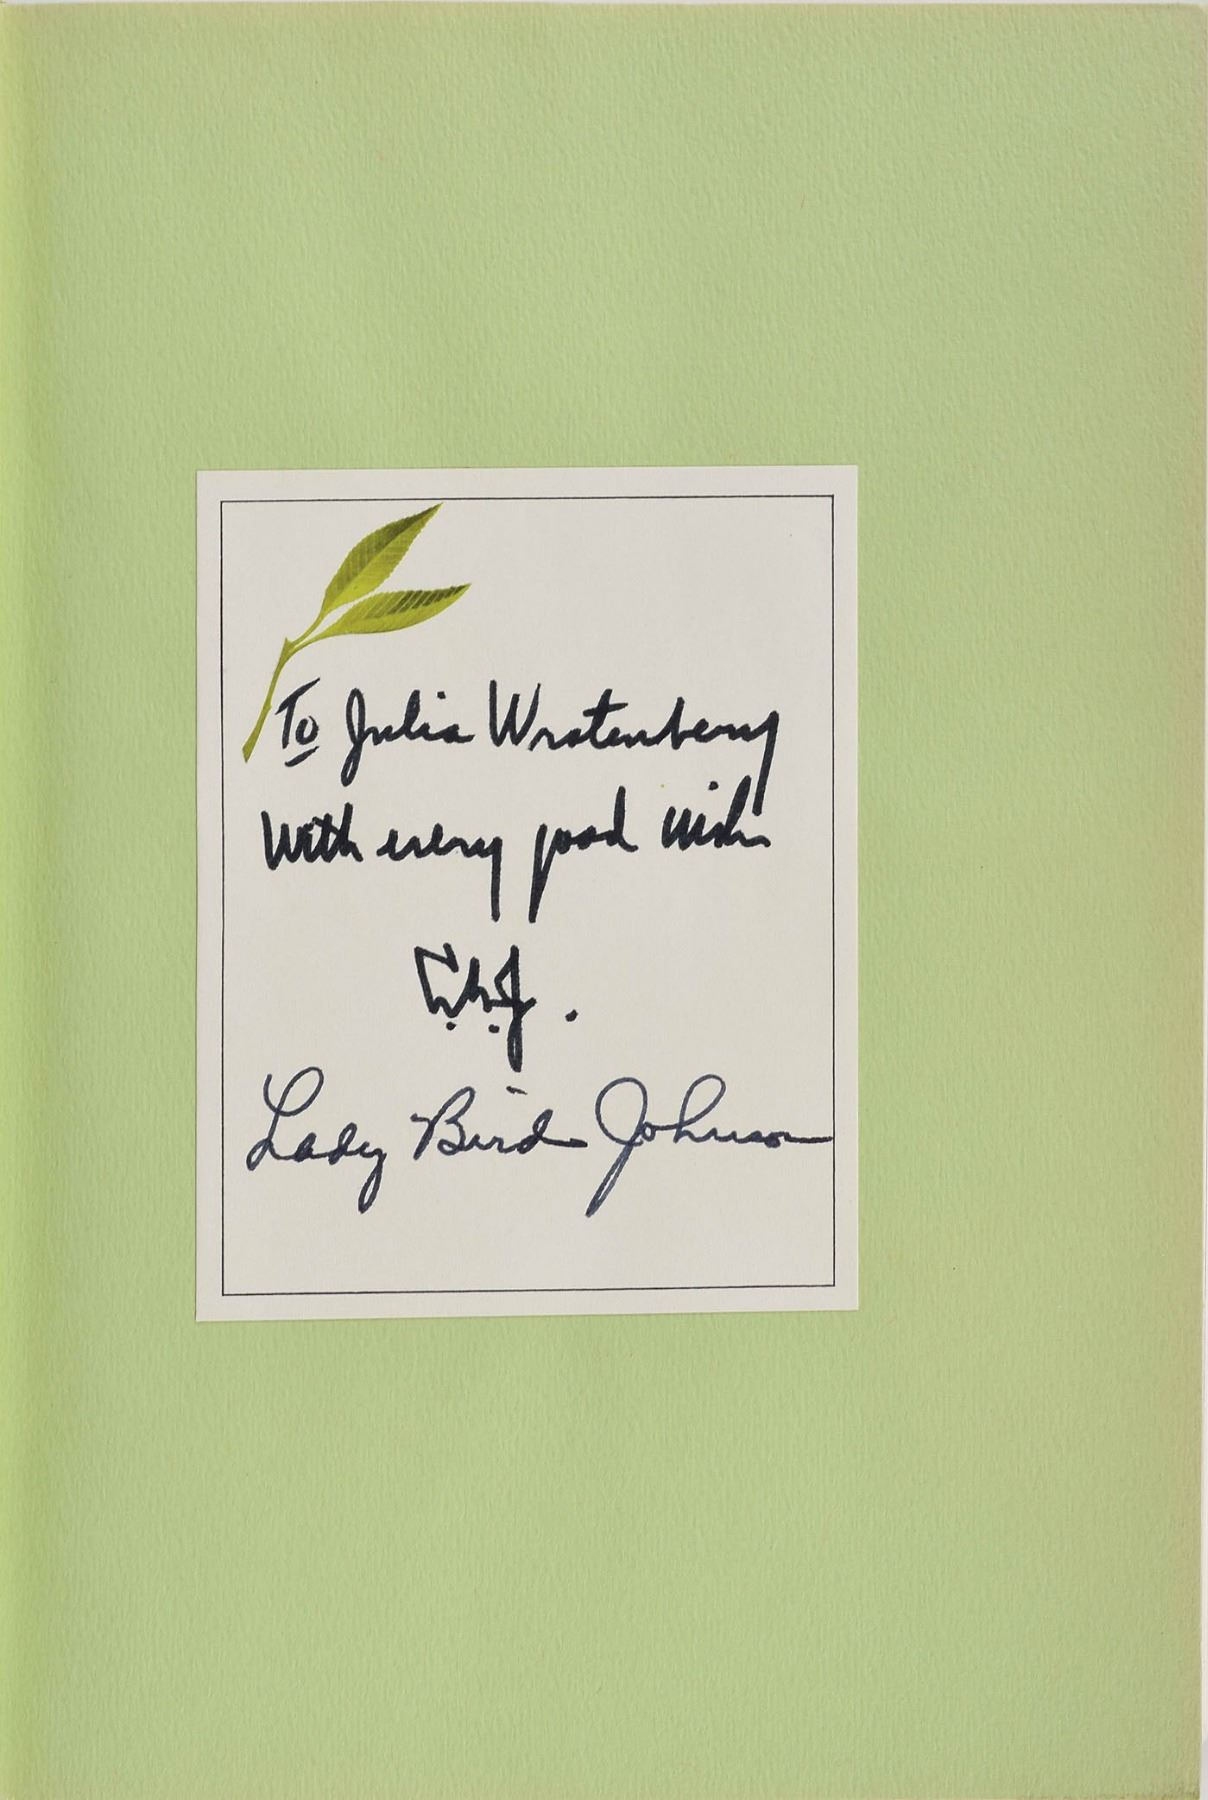 To Julia Wrotenbery
With every good wish
L.B.J.
Lady Bird Johnson